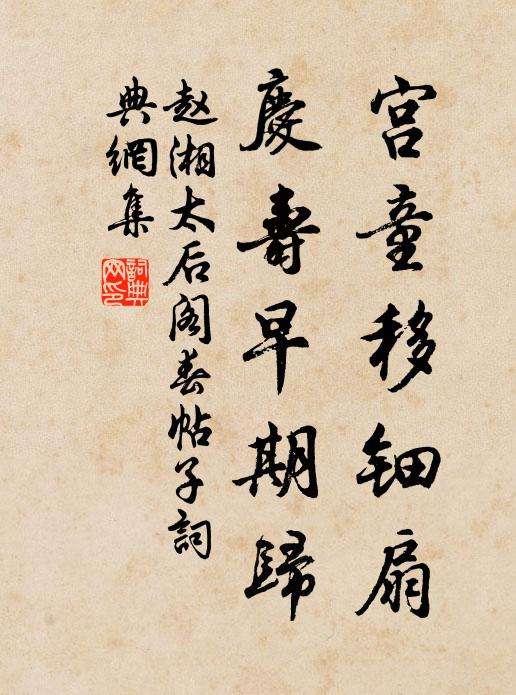 宫童移钿扇
慶壽早期歸
赵湘太后阁春帖子詞
典網集
詞典
网印